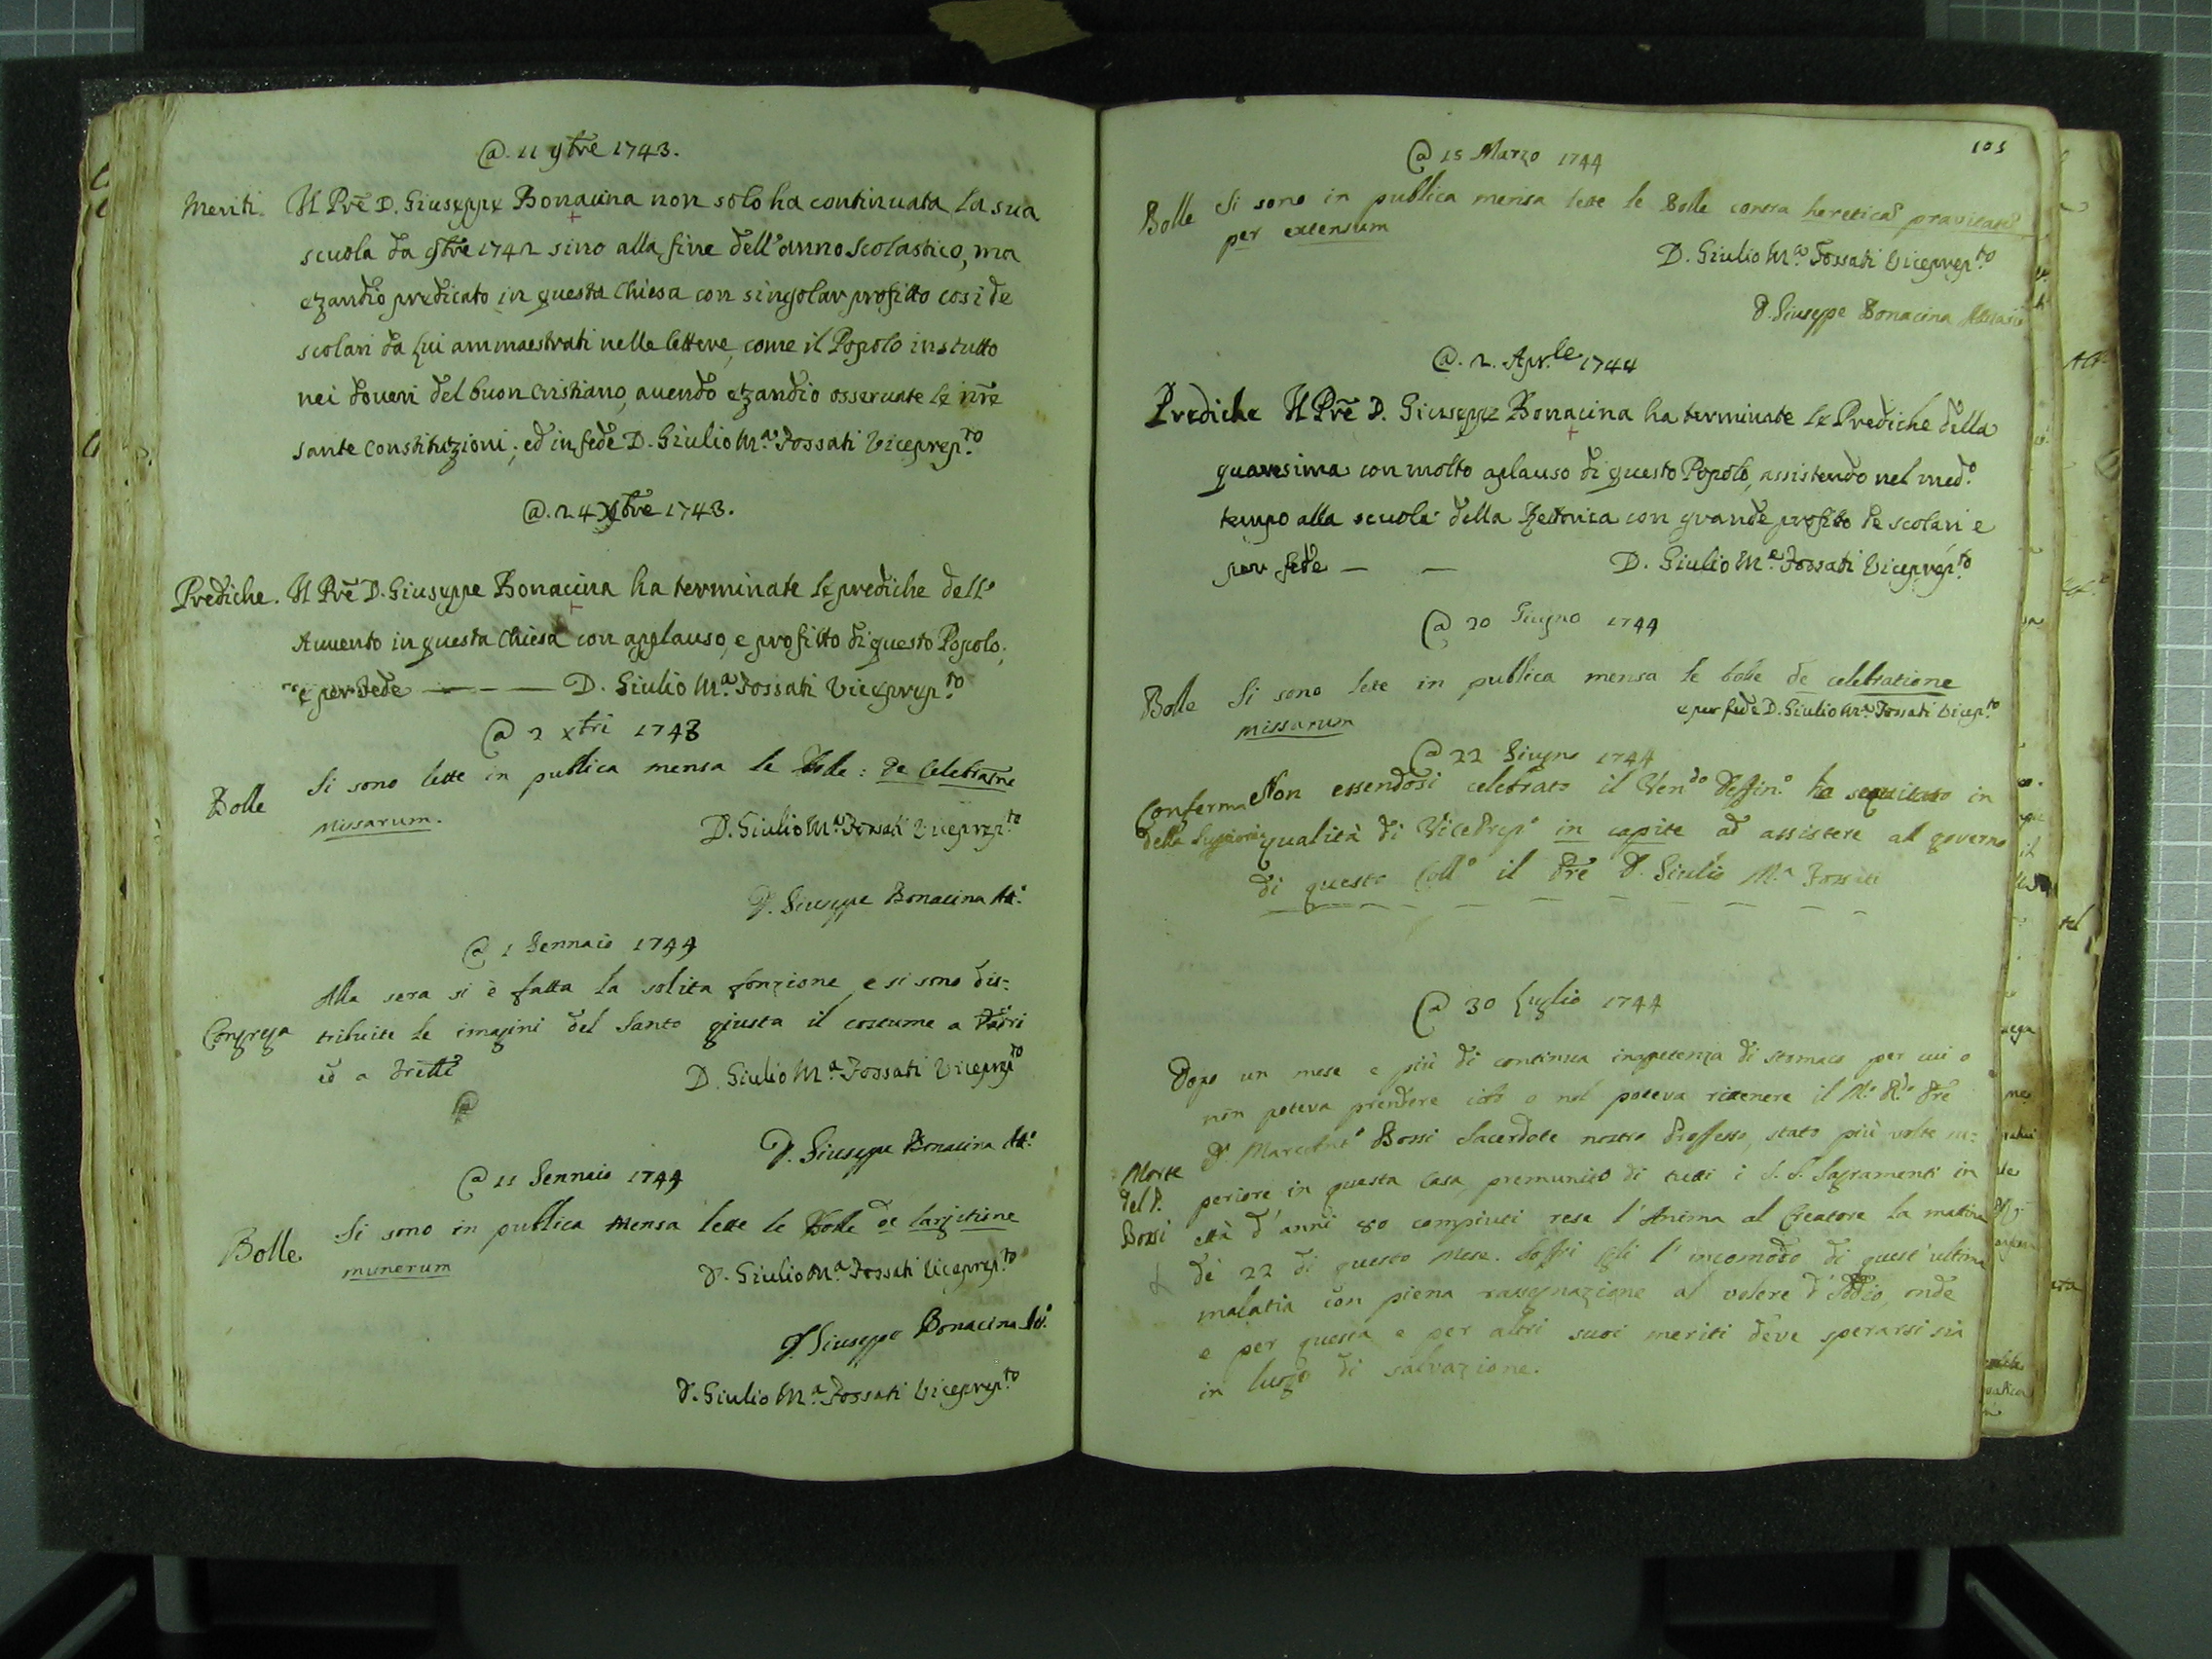 @. 11 9bre 1743.
Meriti. Il Prē D. Giuseppe Bonacina non solo ha continuata la sua
scuola da 9bre 1742 sino alla fine dell'anno scolastico, ma
ezandio predicato in questa Chiesa con singolar profitto cosi de
scolari da lui ammaestrati nelle lettere, come il Popolo instutto
nei doveri del buon Cristiano, avendo ezandio osservate le nrē
sante Constituzioni; ed in fede D. Giulio M.ª Fossati Viceprep.to
@. 24 Xbre 1743.
Prediche. Il Prē D. Giuseppe Bonacina ha terminate le prediche dell'
Auuento in questa Chiesa con applauso, e profitto di questo Popolo;
e per fede — — — D. Giulio M.ª Fossati Viceprep.to
@ 2 xbri 1743
Bolle Si sono lette in publica mensa le Bolle: de Celebratne
Missarum.
D. Giulio M.ª Fossati Viceprep.to
D. Giuseppe Bonacina Att.º
@ 1 Gennaio 1744
Alla sera si è fatta la solita fonzione, e si sono dis=
Congrega tribuite le imagini del Santo giusta il costume a Padri
ed a Frelli
D. Giulio M.ª Fossati Viceprep.to
@
D. Giuseppe Bonacina Att.º
@ 11 Gennaio 1744
Bolle Si sono in publica Mensa lette le Bolle de largitione
munerum
D. Giulio M.ª Fossati Viceprep.to
D. Giuseppe Bonacina Att.º
D. Giulio M.ª Fossati Viceprep.to
105
@ 15 Marzo 1744
Bolle Si sono in publica mensa lette le Bolle contra hereticā pravitatē
per extensum
D. Giulio M.ª Fossati Viceprep.to
D. Giuseppe Bonacina
@. 2. Apr.le 1744
Prediche Il Prē D. Giuseppe Bonacina ha terminate le Prediche della
quaresima con molto aplauso di questo Popolo, assistendo nel med.º
tempo alla scuola della Rettorica con grande profitto de scolari e
per fede — — D. Giulio M.ª Fossati Viceprep.to
@ 20 Giugno 1744
Bolle Si sono lette in publica mensa le bolle de celebratione
missarum e per fede D. Giulio M.ª Fossati Vicep.to
@ 22 Giugno 1744
Conferma Non essendosi celebrato il Ven.do Deffin.º ha seguitato in
della Superiorità qualità di VicePrep.º in capite ad assistere al governo
di questo Coll.º il Prē D. Giulio M.ª Fossati
@ 30 Luglio 1744
Dopo un mese e più di continua inapetenza di stomaco per cui o
non poteva prendere cibo o nol poteva ritenere il M.º R.do Prē
D. Marcant.º Bossi Sacerdote nostro Professo, stato più volte su=
Morte del P. Bossi
periore in questa Casa, premunito di tutti i S. S. Sagramenti in
età d'anni 80 compiuti rese l'Anima al Creatore la mattina
de 22 di questo Mese. Soffri egli l'incomodo di quest'ultima
malatia con piena rassegnazione al volere d'Iddio, onde
e per questa e per altri suoi meriti deve sperarsi sia
in luogo di salvazione.